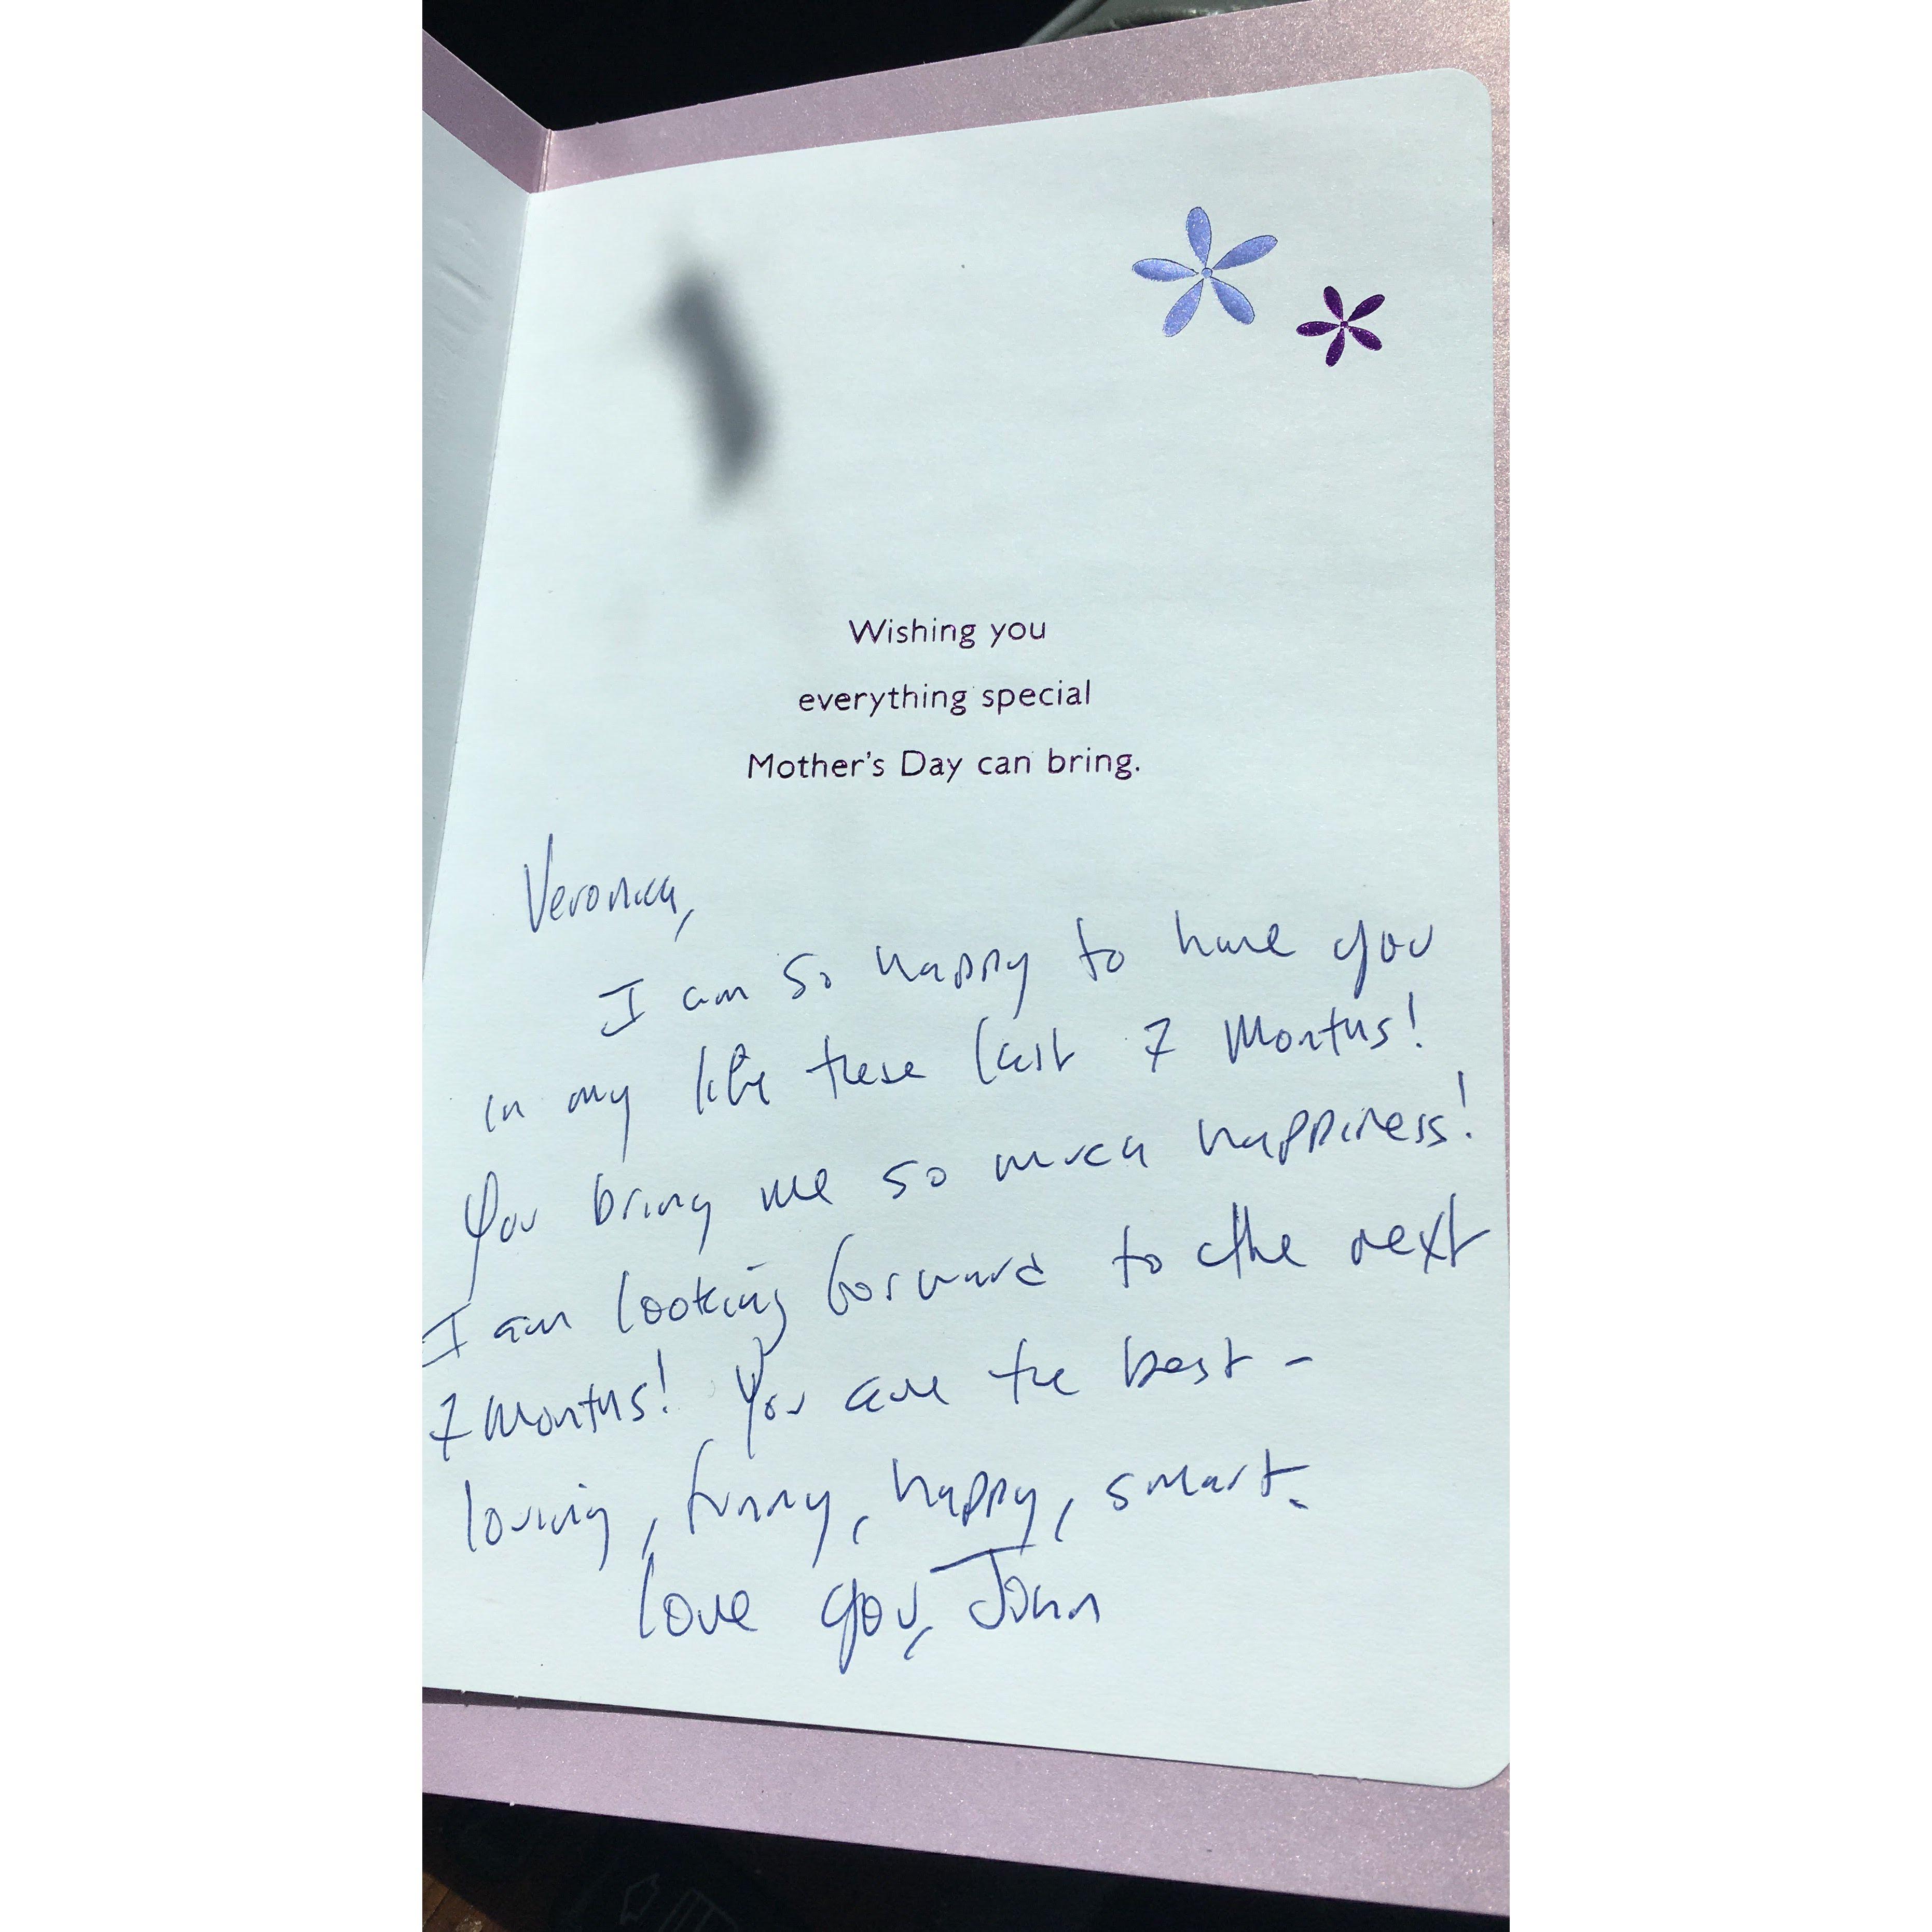 Wishing you
everything special
Mother's Day can bring.
Veronica,
I am so happy to have you
in my life these last 7 months!
You bring me so much happiness!
I am looking forward to the next
7 months! You are the best -
loving, funny, happy, smart.
Love you, John